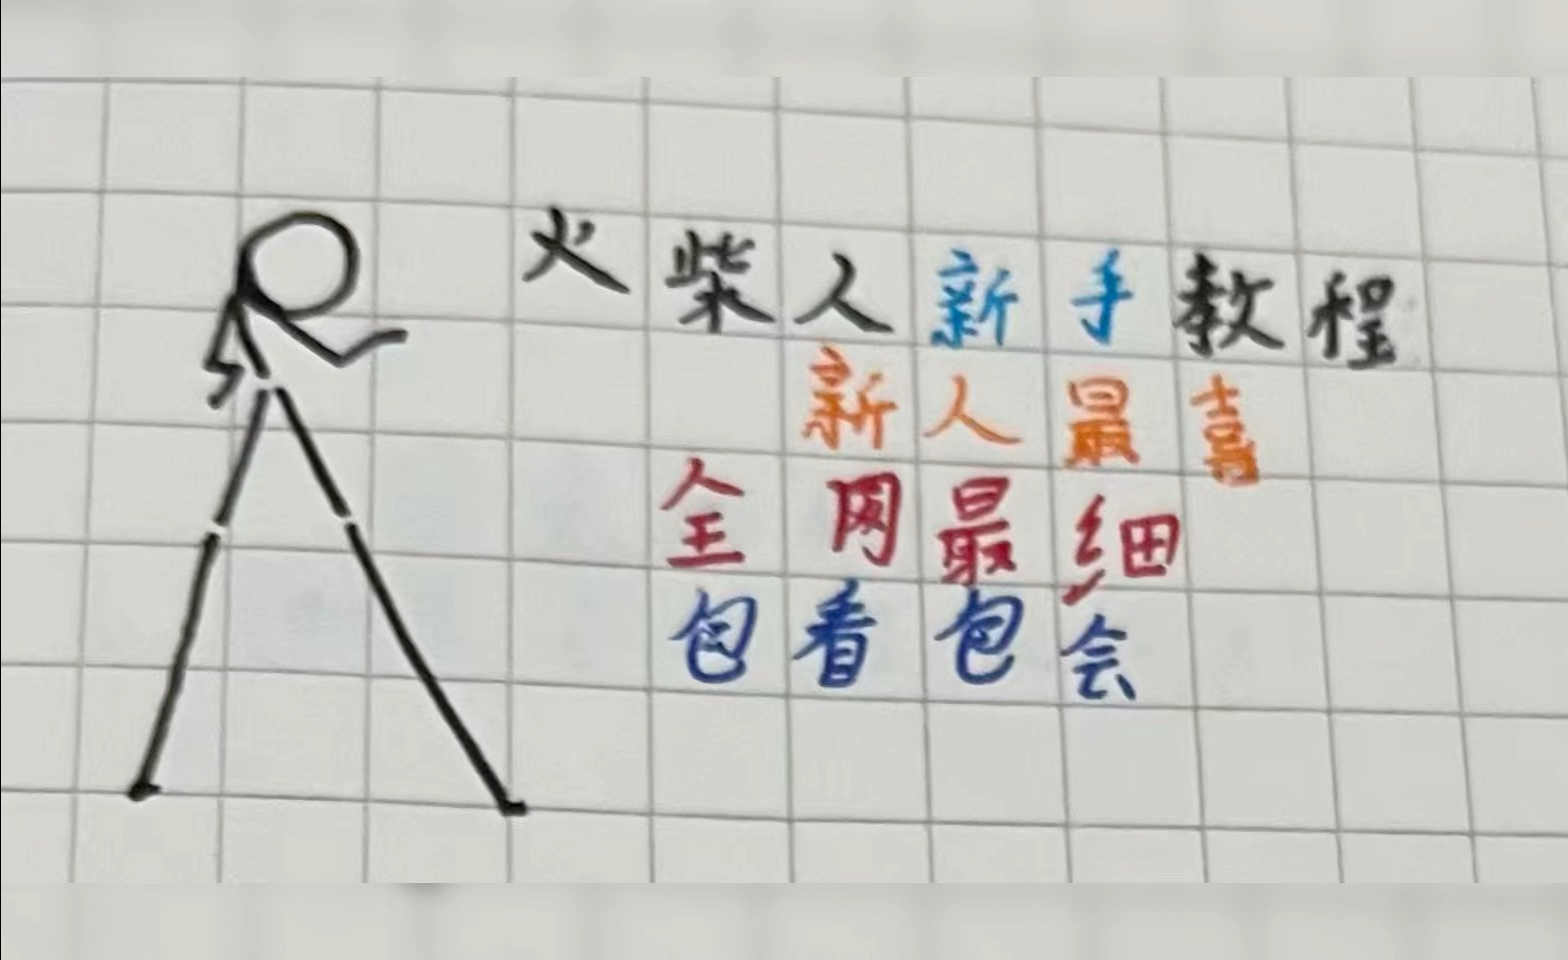 火柴人新手教程
新人最喜
全网最细
包看包会